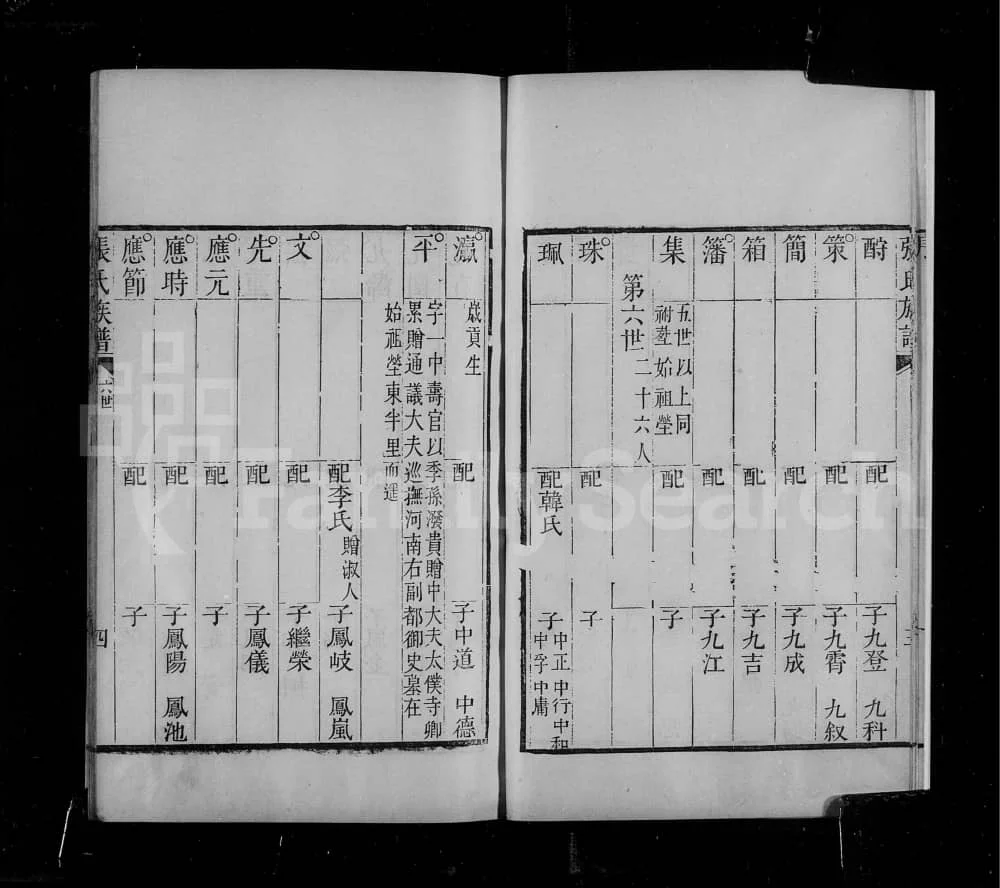 張氏族譜
酹 配 子九登 九科
策 配 子九霄 九叙
簡 配 子九成
箱 配 子九吉
籓 配 子九江
集 五世以上同祔塟始祖塋 配 子
第六世二十六人
珠 配 子
珮 配韓氏 子中正 中行 中和 中孚 中庸
瀛 歲貢生 配 子中道 中德
平 字一中壽官以季孫潑貴贈中大夫太僕寺卿
累贈通議大夫巡撫河南右副都御史墓在
始祖塋東半里而遥
配李氏贈淑人 子鳳岐 鳳嵐
文 配 子繼榮
先 配 子鳳儀
應元 配 子
應時 配 子鳳陽 鳳池
應節 配 子
張氏族譜 六世 四
FamilySearch